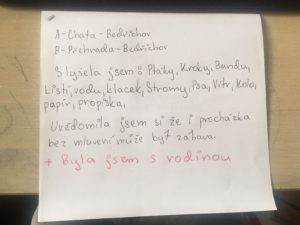 A-Chata-Bedřichov
B-Přehrada-Bedřichov
Slyšela jsem: Ptáky, Kroky, Bundu,
Listí, vodu, klacek, Stromy, Psa, Vítr, Kolo,
papír, propiska,
Uvědomila jsem si že i procházka
bez mluvení může být zábava.
+ Byla jsem s rodinou